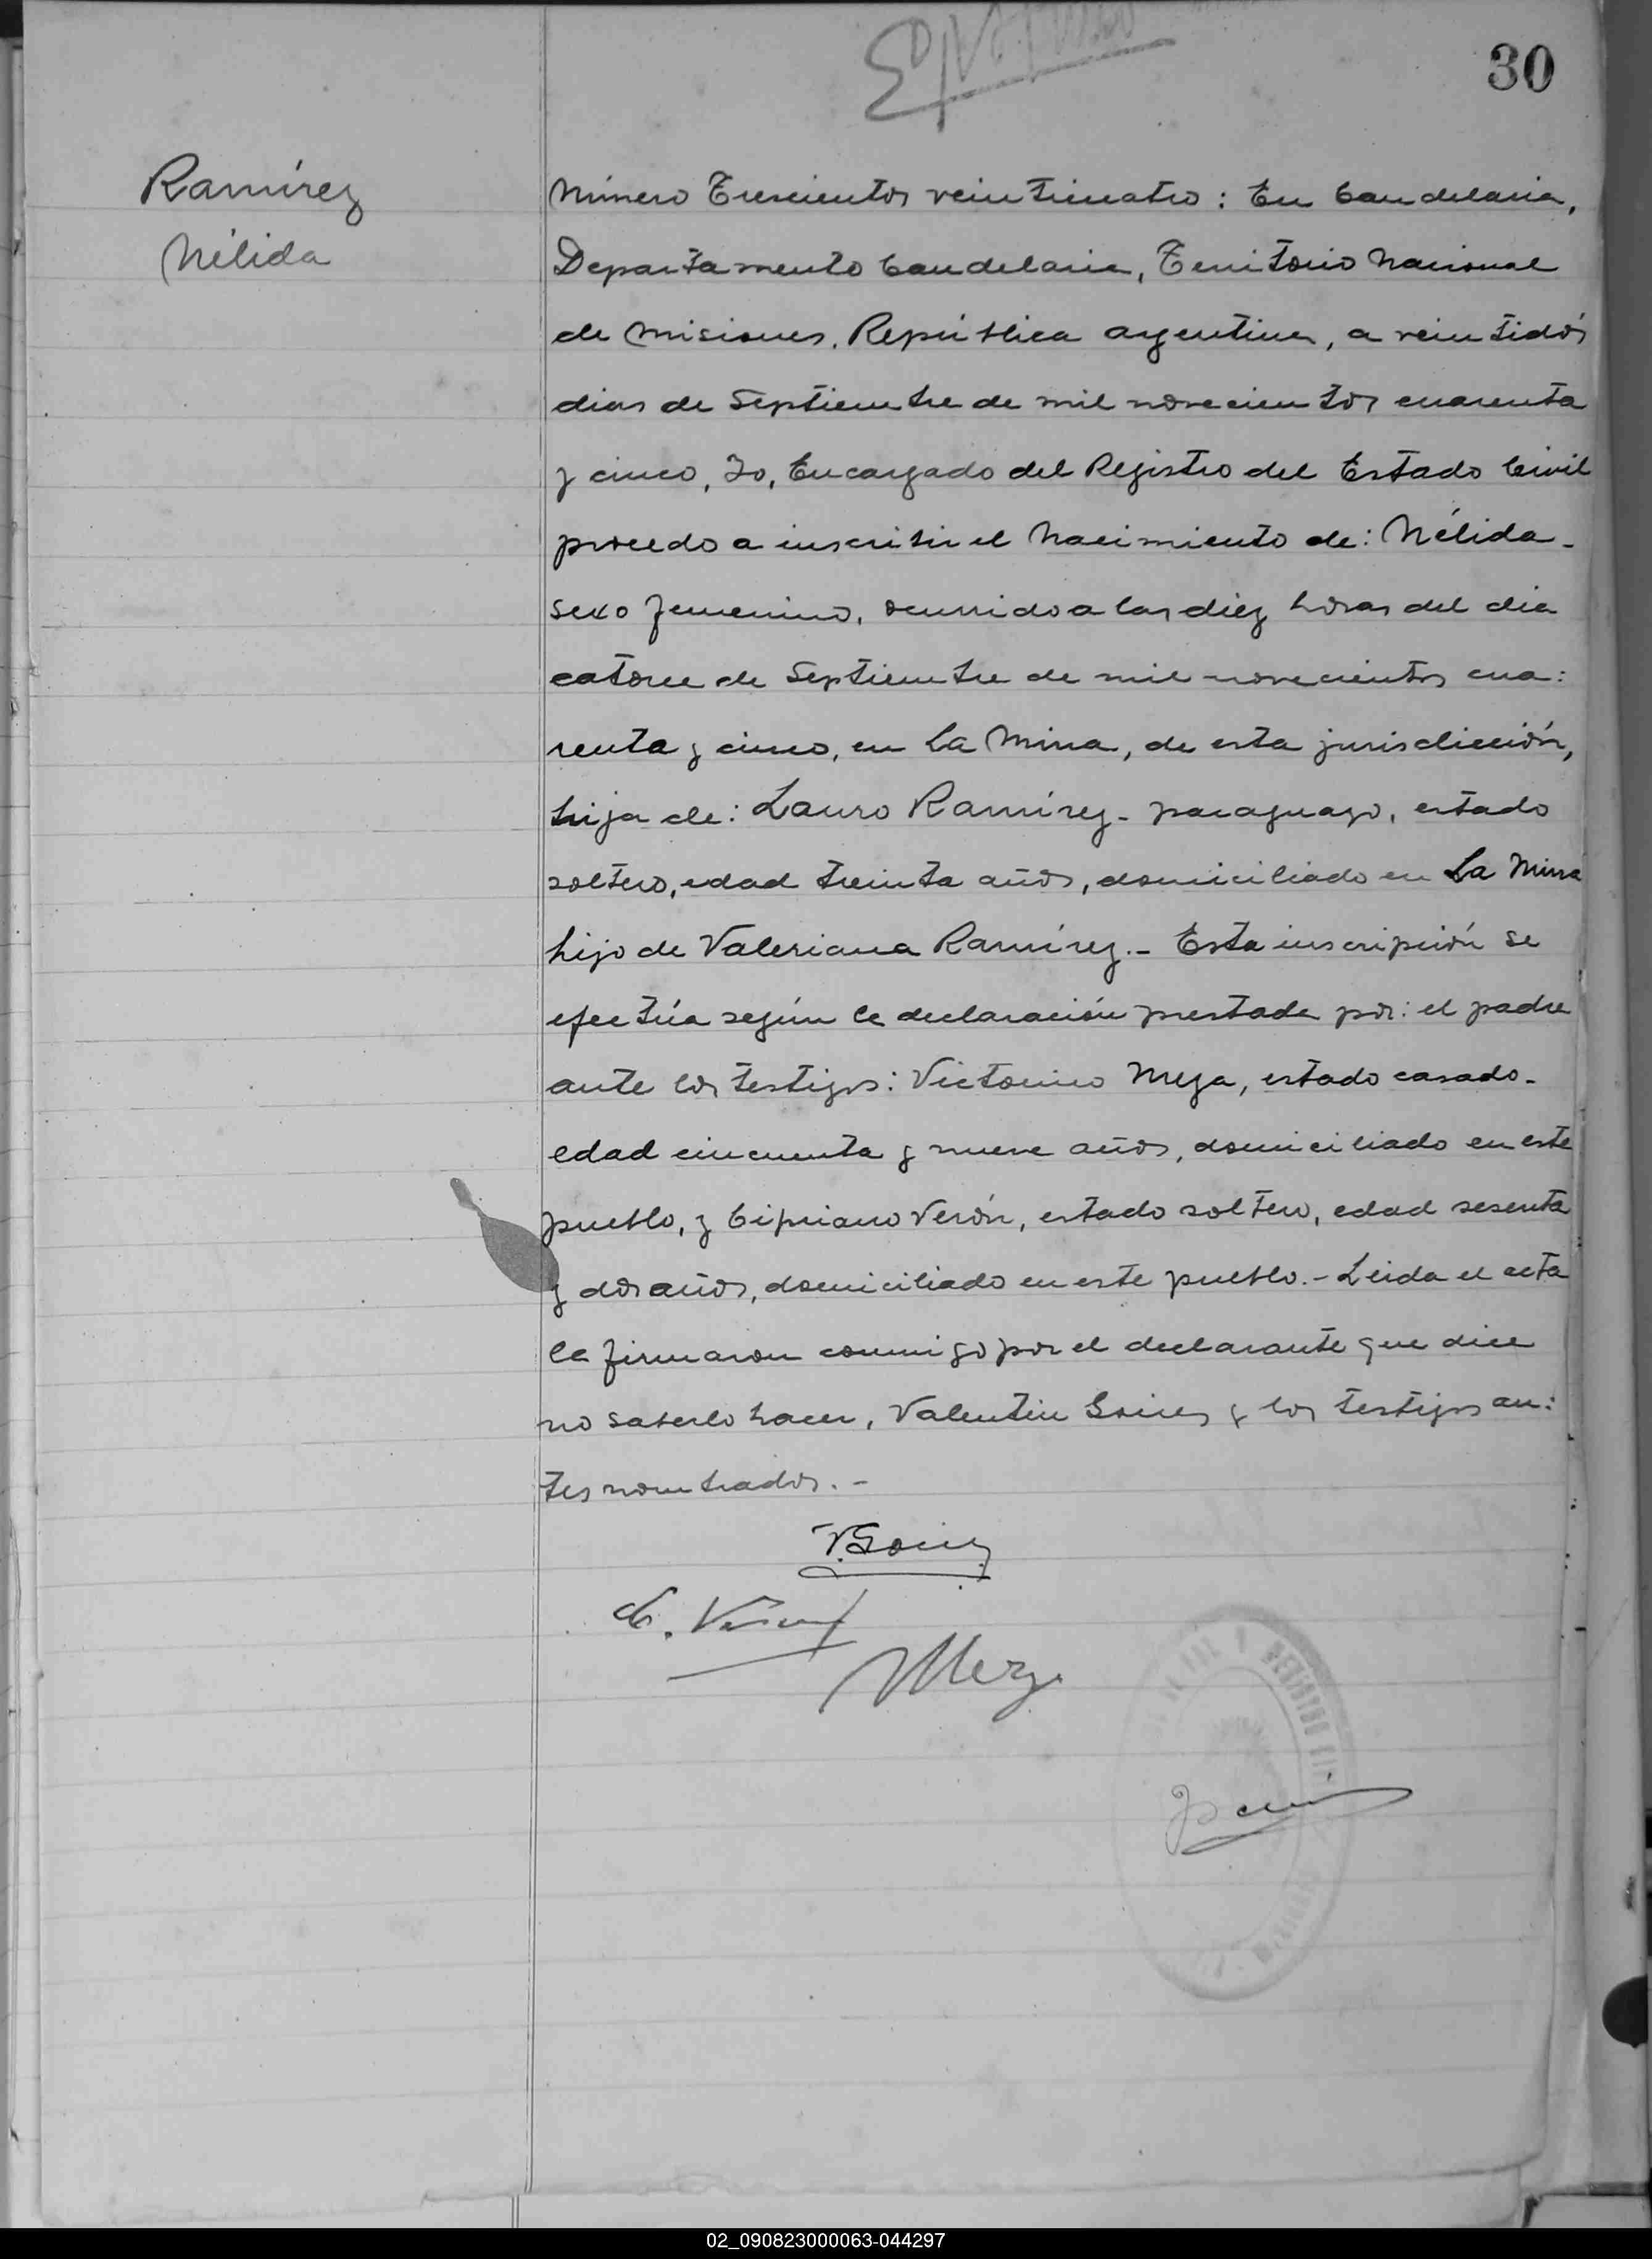 30
Ramírez
Nélida
Número Trescientos veinticuatro: En Candelaria,
Departamento Candelaria, Territorio Nacional
de Misiones, República Argentina, a veintidós
dias de Septiembre de mil novecientos cuarenta
y cinco, Yo, Encargado del Registro del Estado Civil
procedo a inscribir el Nacimiento de: Nélida-
sexo femenino, ocurrido a las diez horas del dia
catorce de Septiembre de mil novecientos cua:
renta y cinco, en La Mina, de esta jurisdicción,
hija de: Lauro Ramírez- paraguayo, estado
soltero, edad treinta años, domiciliado en La Mina
hijo de Valeriana Ramírez.- Esta inscripción se
efectúa según la declaración prestada por: el padre
ante los testigos: Victorino Meza, estado casado-
edad cincuenta y nueve años, domiciliado en este
pueblo, y Cipriano Verón, estado soltero, edad sesenta
y dos años, domiciliado en este pueblo.- Leida el acta
la firmaron conmigo por el declarante que dice
no saberlo hacer, Valentin Goires y los testigos an:
tes nombrados.-
V. Goires
C. Verón
Meza
REGISTRO CIVIL
02_090823000063-044297